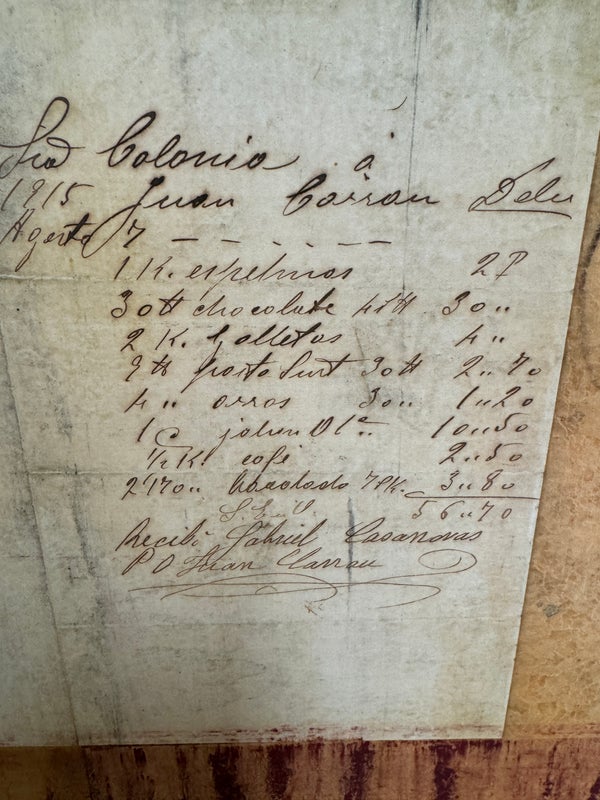 Colonia á
1915 Juan Carrau Debe
Agosto 7
1 K. espelmas 2 P
30 tt chocolate 30 "
2 K. Galletas 4 "
9 tt pasta Surt 30 tt 2 " 70
4 " arros 30 " 1 " 20
1 C jabon 10 " 50
1/2 K. cofe 2 " 50
2'170 " 7 P K. 3 " 80
56 " 70
Recibi Gabriel Casanovas
P O Juan Carrau